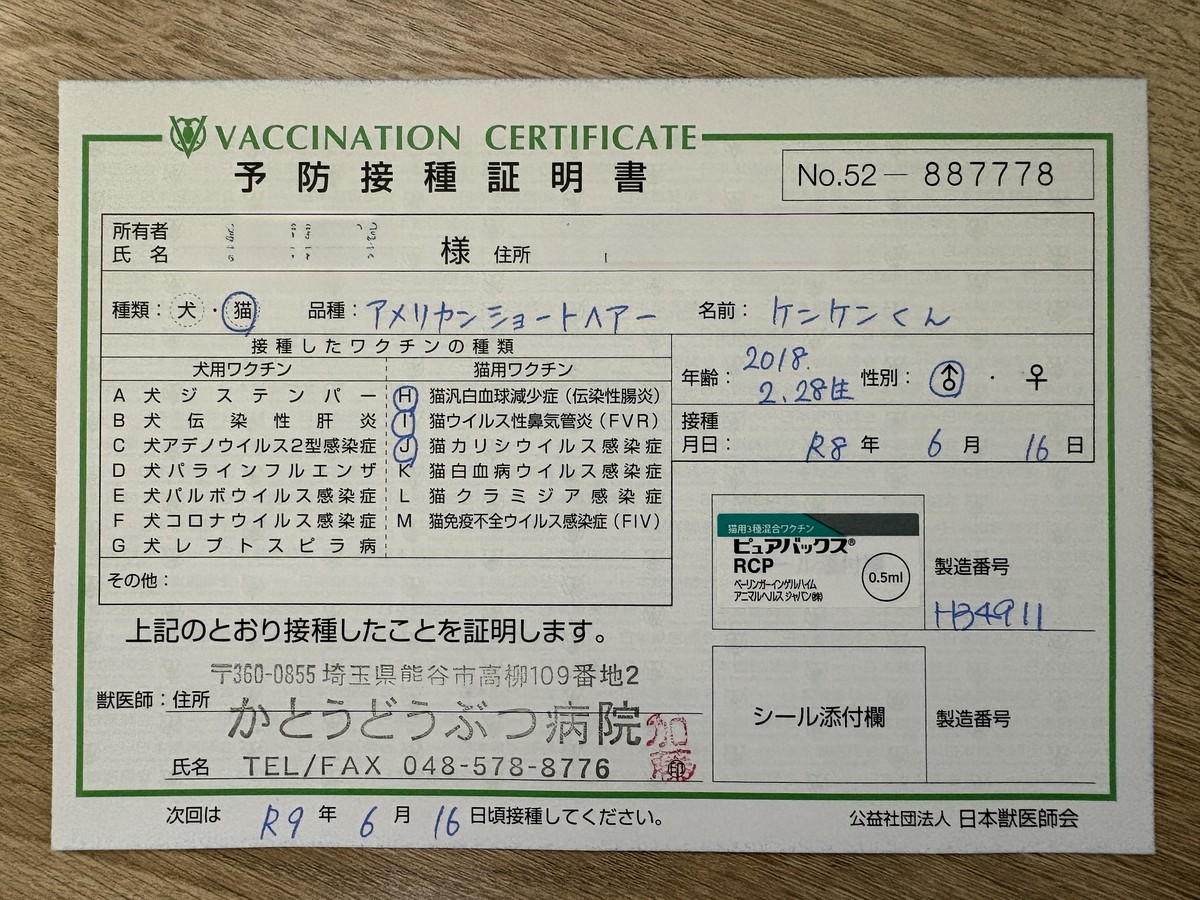 VACCINATION CERTIFICATE
予防接種証明書
No.52－887778
所有者
氏名 様 住所
種類：犬・猫 品種：アメリカンショートヘアー 名前：ケンケンくん
接種したワクチンの種類
犬用ワクチン 猫用ワクチン
A 犬ジステンパー H 猫汎白血球減少症（伝染性腸炎）
B 犬伝染性肝炎 I 猫ウイルス性鼻気管炎（FVR）
C 犬アデノウイルス2型感染症 J 猫カリシウイルス感染症
D 犬パラインフルエンザ K 猫白血病ウイルス感染症
E 犬パルボウイルス感染症 L 猫クラミジア感染症
F 犬コロナウイルス感染症 M 猫免疫不全ウイルス感染症（FIV）
G 犬レプトスピラ病
その他：
年齢：2018.
2.28生 性別：♂・♀
接種
月日：R8年6月16日
猫用3種混合ワクチン
ピュアバックス®
RCP
0.5ml
ベーリンガーインゲルハイム
アニマルヘルス ジャパン㈱
製造番号
HB4911
上記のとおり接種したことを証明します。
〒360-0855 埼玉県熊谷市高柳109番地2
獣医師：住所
かとうどうぶつ病院
氏名 TEL/FAX 048-578-8776
加藤
印
シール添付欄 製造番号
次回は R9年6月16日頃接種してください。
公益社団法人 日本獣医師会